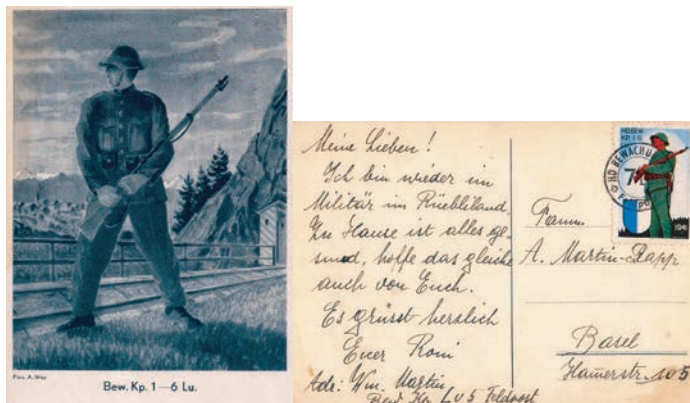 Bew. Kp. 1—6 Lu.
Meine Lieben!
Ich bin wieder im
Militär im Rüebliland.
Zu Hause ist alles ge-
sund, hoffe das gleiche
auch von Euch.
Es grüsst herzlich
Euer Roni
Ade: Wm. Martin
Bew. Kp. Lu 5 Feldpost
HD BEWACHU
1941
A. Martin-Rapp
Basel
Hamerstr. 105